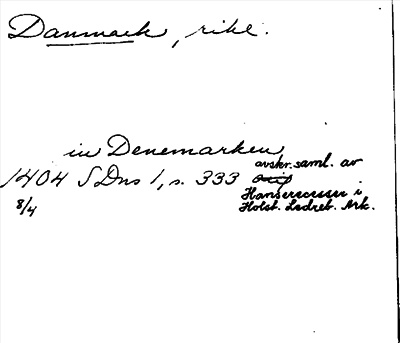 Danmark, rike.
in Denemarken
avskr. saml. av
1404 SDns 1, s. 333 orig
8/4
Hanserecesser i
Holst. Ledreb. Ark.